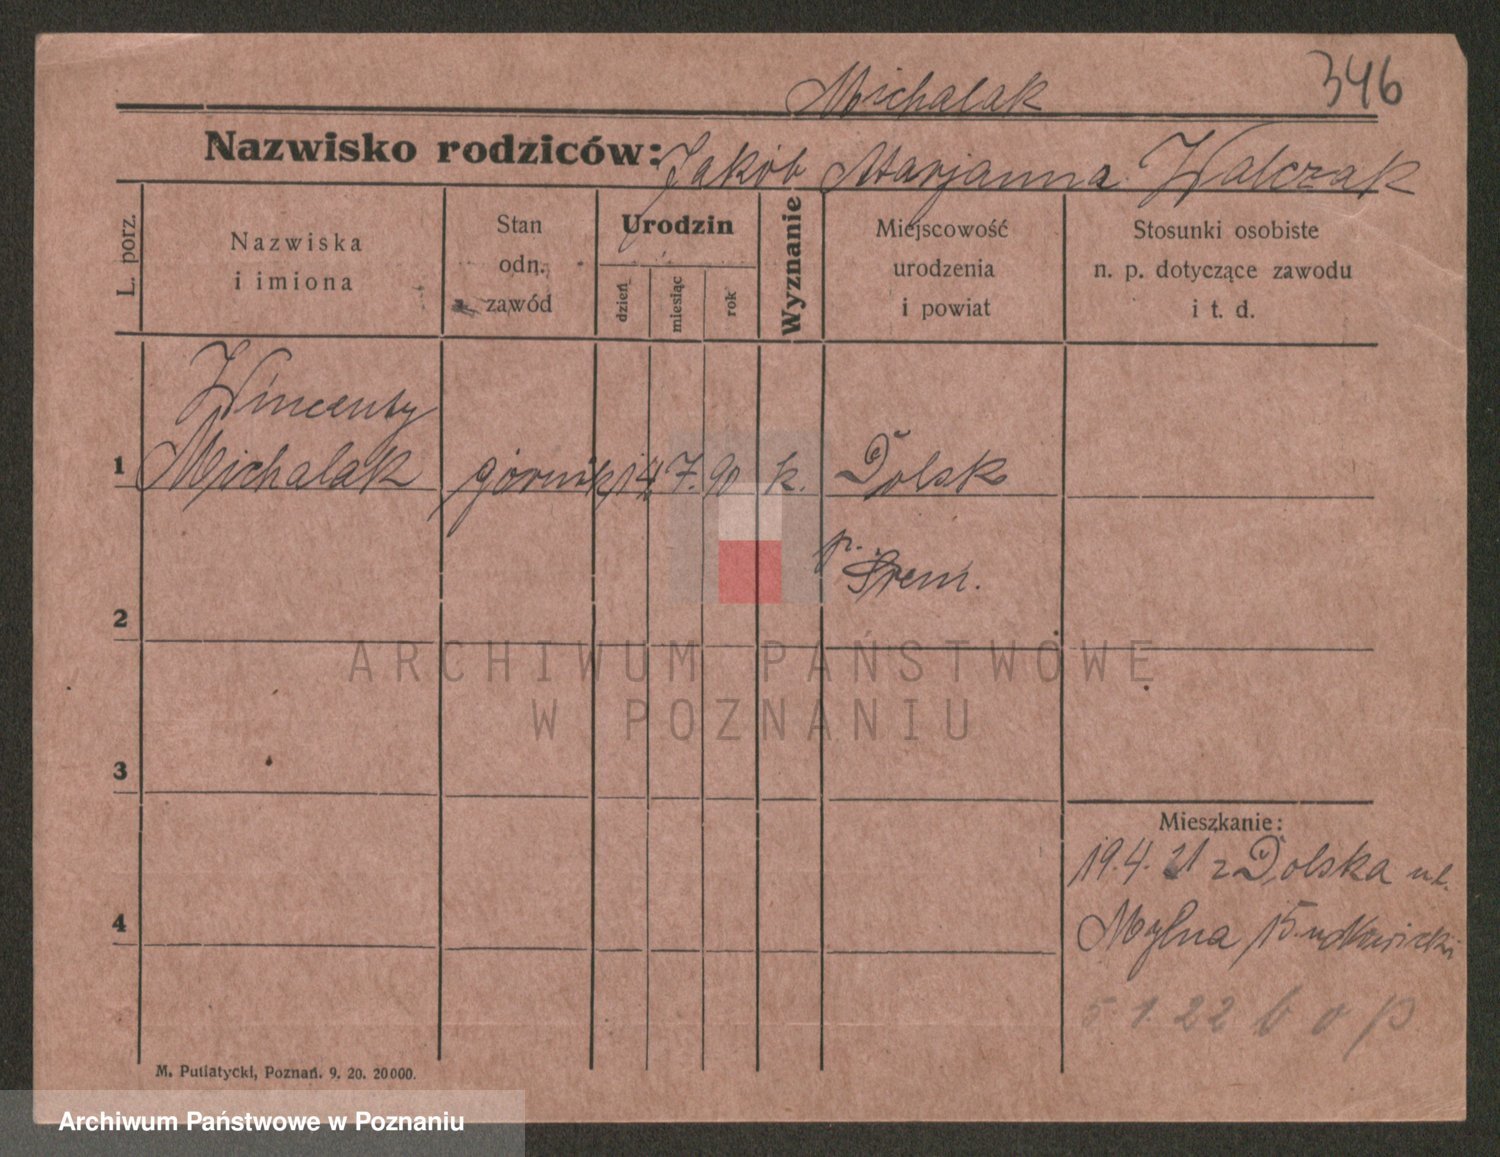 346
Michalak
Nazwisko rodziców: Jakób Marjanna Walczak
L. porz.
Nazwiska
i imiona
Stan
odn.
zawód
Urodzin
dzień
miesiąc
rok
Wyznanie
Miejscowość
urodzenia
i powiat
Stosunki osobiste
n. p. dotyczące zawodu
i t. d.
Wincenty
1 Michalak górnik 14 7. 90 k. Dolsk
p. Śrem.
2
ARCHIWUM PAŃSTWOWE
W POZNANIU
3
Mieszkanie:
19.4. 21 z Dolska ul.
4
Mylna 15.
5 1. 22 b o p
M. Putiatycki, Poznań. 9. 20. 20000.
Archiwum Państwowe w Poznaniu